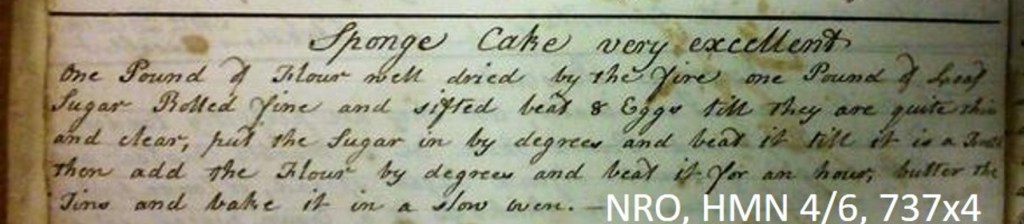 Sponge Cake very excellent
One Pound of Flour well dried by the Fire one Pound of Loaf
Sugar Rolled fine and sifted beat 8 Eggs till they are quite thin
and clear, put the Sugar in by degrees and beat it till it is a
then add the Flour by degrees and beat it for an hour, butter the
Tins and bake it in a slow oven. —
NRO, HMN 4/6, 737x4